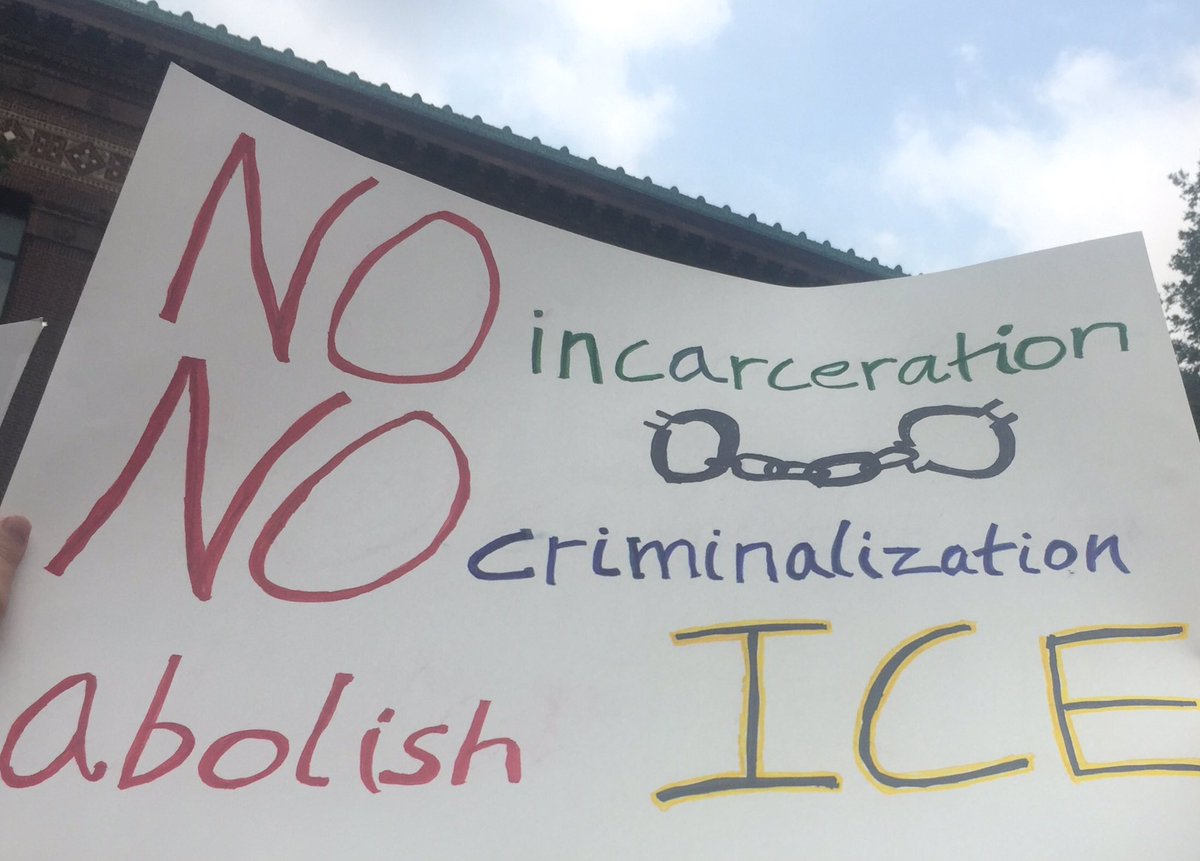 NO incarceration
NO criminalization
abolish ICE